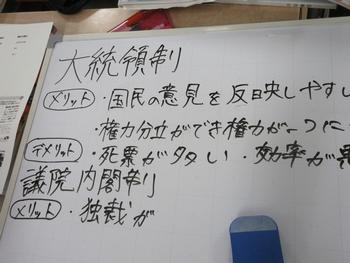 大統領制
メリット・国民の意見を反映しやすし
・権力分立ができ権力が一つに
デメリット・死票が多い・効率が悪
議院内閣制
メリット・独裁が